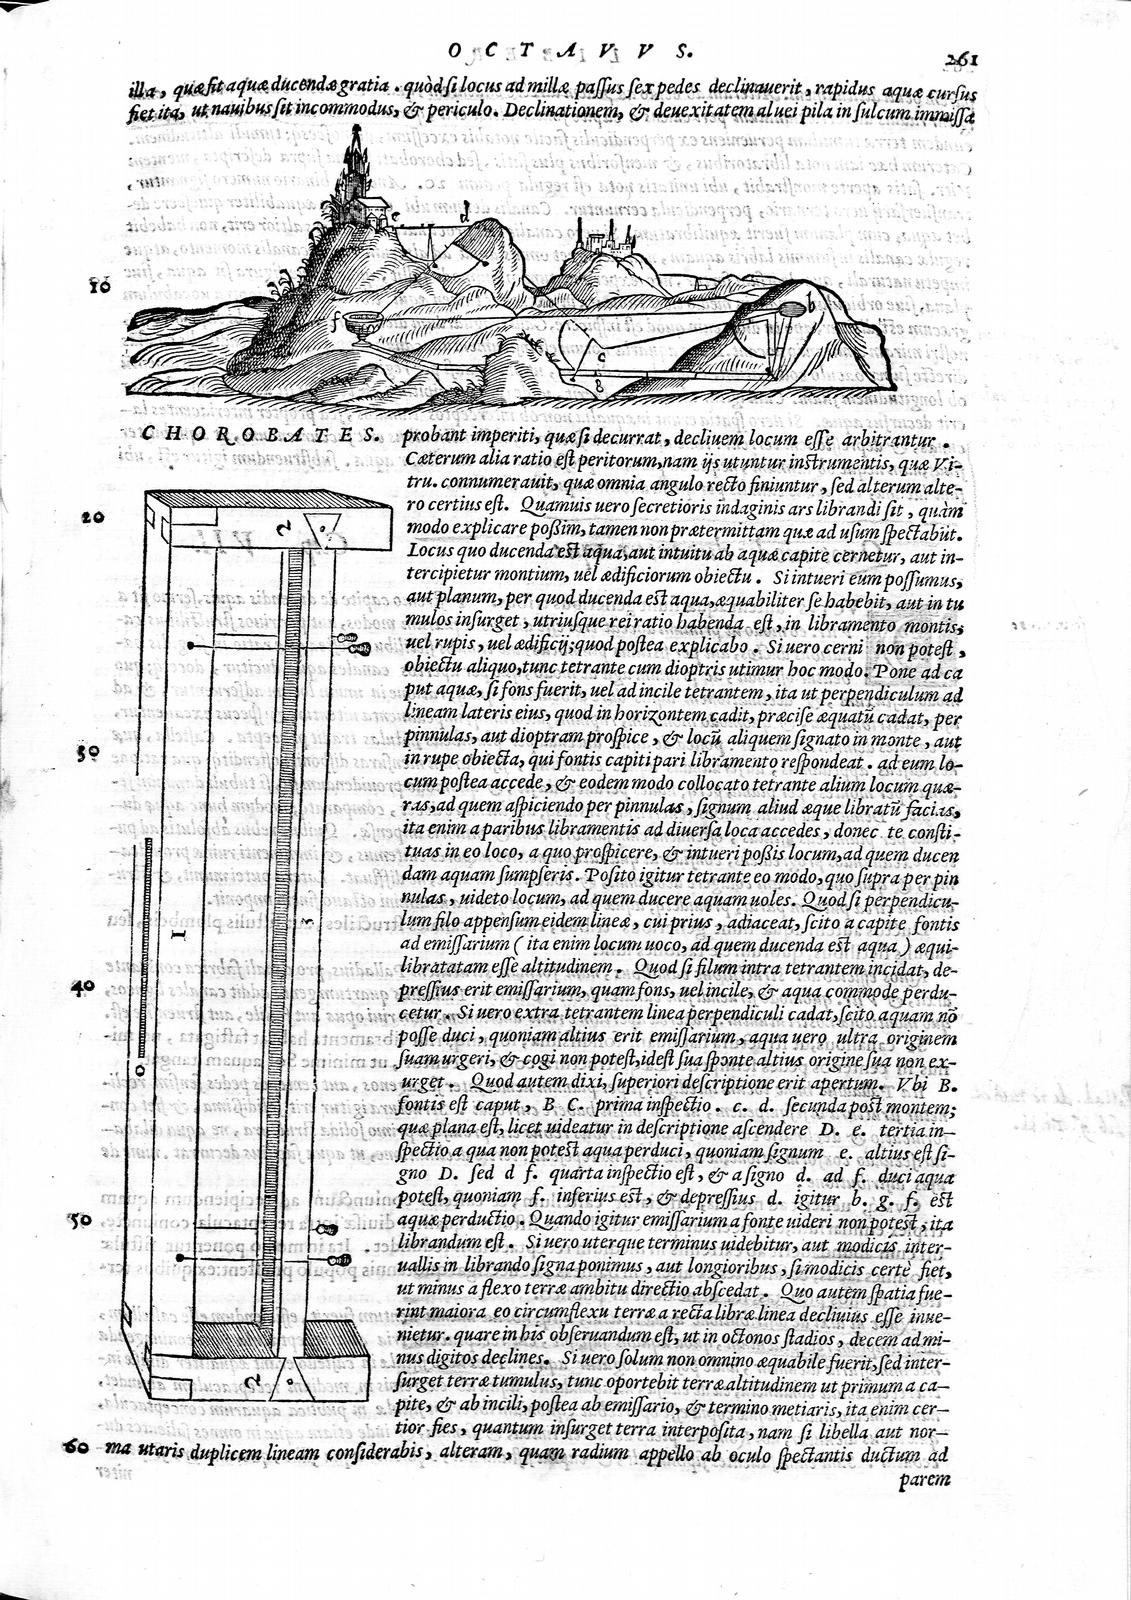 OCTAVVS. 261
illa, quæ fit aquæ ducendæ gratia. quòd si locus ad millæ passus sex pedes declinauerit, rapidus aquæ cursus
fiet ita, ut nauibus sit incommodus, & periculo. Declinationem, & deuexitatem aluei pila in sulcum immissa
e d
10
f b
c
g
CHOROBATES.
probant imperiti, quæ si decurrat, decliuem locum esse arbitrantur.
Cæterum alia ratio est peritorum, nam ijs utuntur instrumentis, quæ Vi-
tru. connumerauit, quæ omnia angulo recto finiuntur, sed alterum alte-
20
ro certius est. Quamuis uero secretioris indaginis ars librandi sit, quàm
modo explicare poßim, tamen non prætermittam quæ ad usum spectabũt.
Locus quo ducenda est aqua, aut intuitu ab aquæ capite cernetur, aut in-
tercipietur montium, uel ædificiorum obiectu. Si intueri eum possumus,
aut planum, per quod ducenda est aqua, æquabiliter se habebit, aut in tu
mulos insurget, utriusque rei ratio habenda est, in libramento montis,
uel rupis, uel ædificij; quod postea explicabo. Si uero cerni non potest,
obiectu aliquo, tunc tetrante cum dioptris utimur hoc modo. Pone ad ca
put aquæ, si fons fuerit, uel ad incile tetrantem, ita ut perpendiculum ad
lineam lateris eius, quod in horizontem cadit, præcise æquatũ cadat, per
pinnulas, aut dioptram prospice, & locũ aliquem signato in monte, aut
30
in rupe obiecta, qui fontis capiti pari libramento respondeat. ad eum lo-
cum postea accede, & eodem modo collocato tetrante alium locum quæ-
ras, ad quem aspiciendo per pinnulas, signum aliud æque libratũ facias,
ita enim a paribus libramentis ad diuersa loca accedes, donec te consti-
tuas in eo loco, a quo prospicere, & intueri poßis locum, ad quem ducen
dam aquam sumpseris. Posito igitur tetrante eo modo, quo supra per pin
nulas, uideto locum, ad quem ducere aquam uoles. Quod si perpendicu-
lum filo appensum eidem lineæ, cui prius, adiaceat, scito a capite fontis
ad emissarium ( ita enim locum uoco, ad quem ducenda est aqua ) æqui-
libratatam esse altitudinem. Quod si filum intra tetrantem incidat, de-
40
pressius erit emissarium, quam fons, uel incile, & aqua commode perdu-
cetur. Si uero extra tetrantem linea perpendiculi cadat, scito aquam nõ
posse duci, quoniam altius erit emissarium, aqua uero ultra originem
suam urgeri, & cogi non potest, idest sua sponte altius origine sua non ex-
urget. Quod autem dixi, superiori descriptione erit apertum. Vbi B.
fontis est caput, B C. prima inspectio. c. d. secunda post montem;
quæ plana est, licet uideatur in descriptione ascendere D. e. tertia in-
spectio a qua non potest aqua perduci, quoniam signum e. altius est si-
gno D. sed d f. quarta inspectio est, & a signo d. ad f. duci aqua
potest, quoniam f. inferius est, & depressius d. igitur b. g. f. est
50
aquæ perductio. Quando igitur emissarium a fonte uideri non potest, ita
librandum est. Si uero uterque terminus uidebitur, aut modicis inter-
uallis in librando signa ponimus, aut longioribus, si modicis certè fiet,
ut minus a flexo terræ ambitu directio abscedat. Quo autem spatia fue-
rint maiora eo circumflexu terræ a recta libræ linea decliuius esse inue-
nietur. quare in his obseruandum est, ut in octonos stadios, decem ad mi-
nus digitos declines. Si uero solum non omnino æquabile fuerit, sed inter-
surget terræ tumulus, tunc oportebit terræ altitudinem ut primum a ca-
pite, & ab incili, postea ab emissario, & termino metiaris, ita enim cer-
tior fies, quantum insurget terra interposita, nam si libella aut nor-
60
ma utaris duplicem lineam considerabis, alteram, quam radium appello ab oculo spectantis ductum ad
parem
2
1
3
0
2